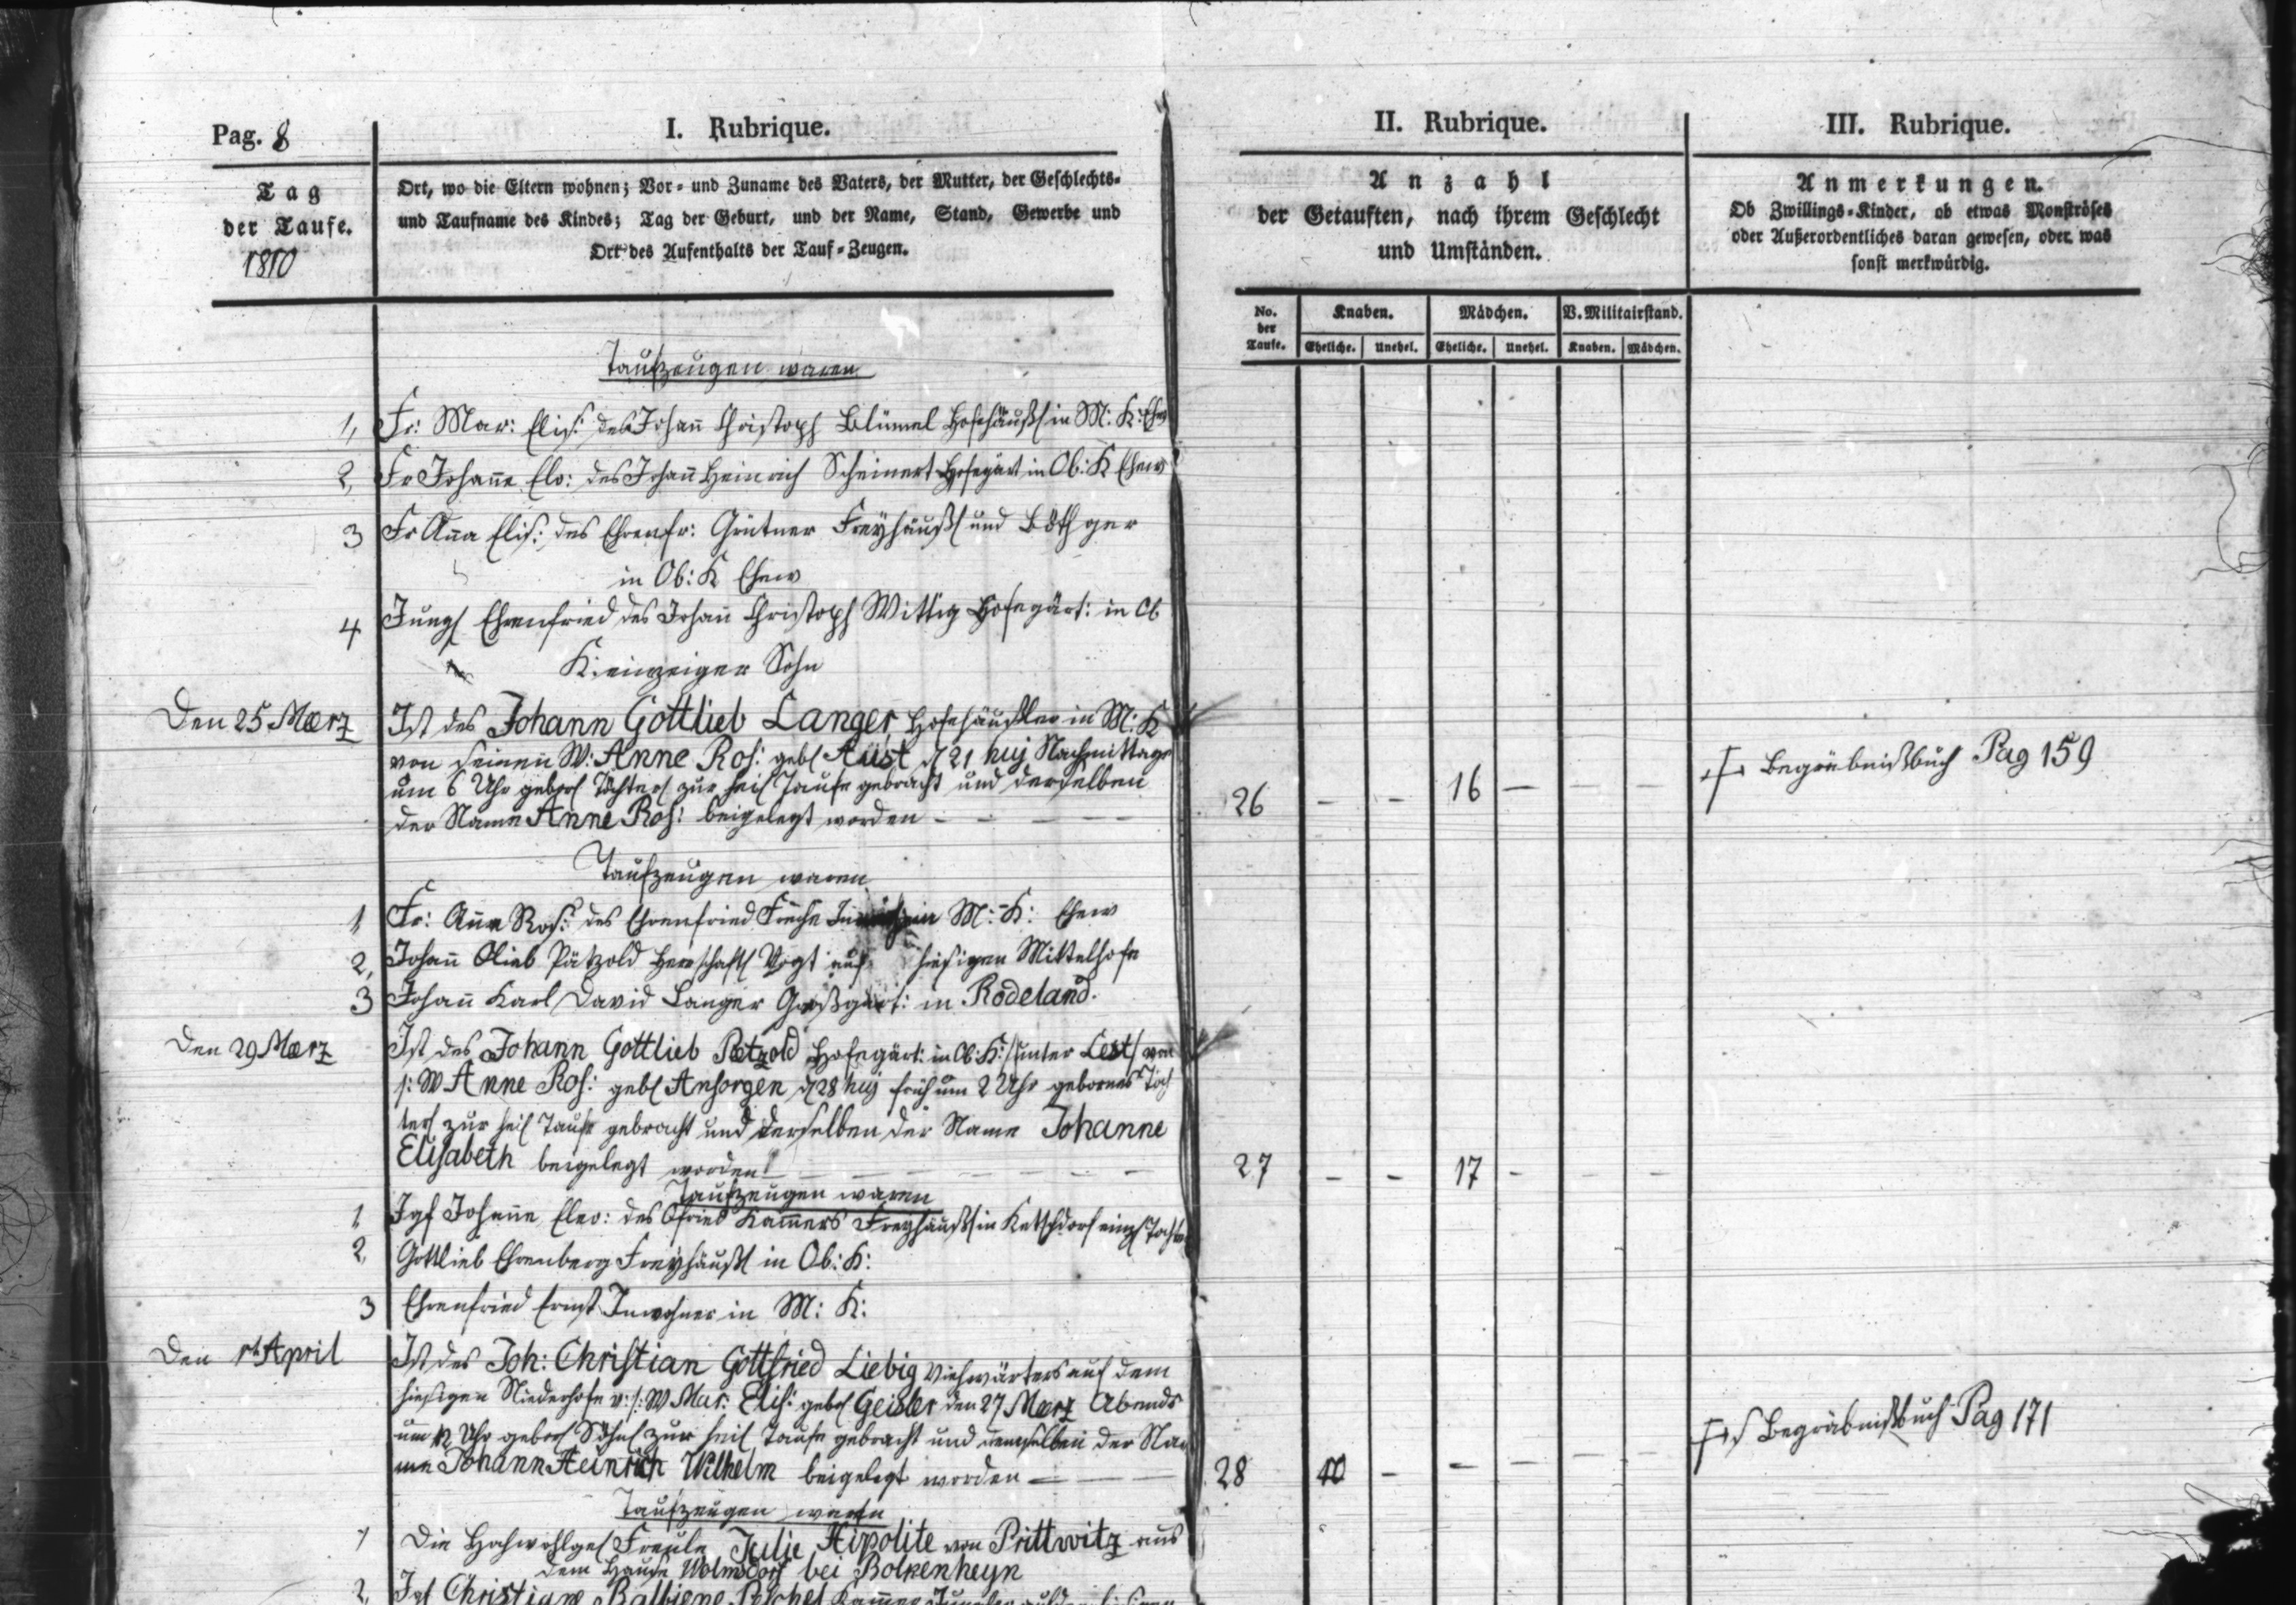 Pag. 8
I. Rubrique.
II. Rubrique.
III. Rubrique.
Tag
der Taufe.
1810
Ort, wo die Eltern wohnen; Vor- und Zuname des Vaters, der Mutter, der Geschlechts-
und Taufname des Kindes; Tag der Geburt, und der Name, Stand, Gewerbe und
Ort des Aufenthalts der Tauf-Zeugen.
Anzahl
der Getauften, nach ihrem Geschlecht
und Umständen.
Anmerkungen.
Ob Zwillings-Kinder, ob etwas Monströses
oder Außerordentliches daran gewesen, oder was
sonst merkwürdig.
No. der Taufe.
Knaben. Mädchen. V. Militairstand.
Eheliche. Unehel. Eheliche. Unehel. Knaben. Mädchen.
Taufzeugen waren
1, Fr: Mar: Elis: des Johann Christoph Blümel Hofehäusl in M: K: Ehew
2, Fr Johanne Elo: des Johann Heinrich Scheinert Hofegärt in Ob: K Ehew
3 Fr Anna Elis: des Ehrenfr: Grütner Freyhäusl und Böthger
in Ob: K Ehew
4 Jungs Ehrenfried des Johann Christoph Wittig Hofegärt: in Ob
K: einzeiger Sohn
Den 25 Maerz Ist des Johann Gottlieb Langer, Hofehäusler in M: K
von seinen W: Anne Ros: geb Aust d 21 huj Nachmittags
um 6 Uhr gebor Töchterl zur heil Taufe gebracht und derselben
der Name Anne Ros: beigelegt worden - - - -
26 - - 16 - - -
Begräbnißbuch Pag 159
Taufzeugen waren
1, Fr: Anna Ros: des Ehrenfried in M: K: Ehew
2, Johann Glieb Pätzold Herrschaftl Vogt auf hiesigen Mittelhofe
3 Johann Karl David Langer Großgärt: in Rodeland.
Den 29 Maerz Ist des Johann Gottlieb Petzold Hofegärt: in Ob: K: /:unter Lest/ von
s: W Anne Ros: geb Ansorgen d 28 huj früh um 2 Uhr gebornes Töch
terl zur heil Taufe gebracht und derselben der Name Johanne
Elisabeth beigelegt worden - - -
27 - - 17 - - -
Taufzeugen waren
1, Jgf Johanne Eleo: des Gfried Kammers Freyhäusl in Ketschdorf Tochter
2, Gottlieb Ehrenberg Freyhäusl in Ob: K:
3 Ehrenfried Ernst Inwohner in M: K:
Den 1t April Ist des Joh: Christian Gottfried Liebig Viehwärters auf dem
hiesigen Niederhofe v: s: W Mar: Elis: geb Geisler den 27 Maerz Abends
um Uhr gebor Söhnl zur heil Taufe gebracht und demselben der Na
me Johann Heinrich Wilhelm beigelegt worden - -
28 10 - - - - -
Begräbnißbuch Pag 171
Taufzeugen waren
1 Die Hochwohlgeb Freule Julie Hipolite von Prittwitz aus
dem Hause Wolmsdorf bei Bolkenheyn
2, Jgf Christiane